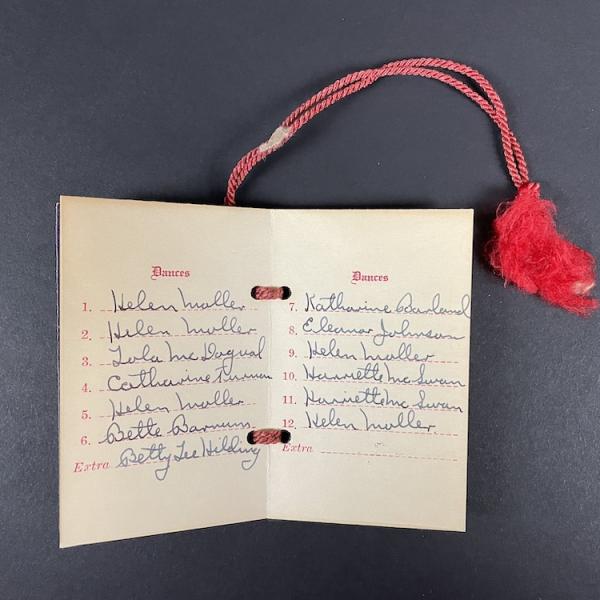 Dances
1. Helen Moller
2. Helen Moller
3. Lola Mc Dogual
4. Catharine Furman
5. Helen Moller
6. Bette Barnum
Extra Betty Lee Hilding
Dances
7. Katharine Garland
8. Eleanor Johnson
9. Helen Moller
10. Harriette Mc Swan
11. Harriette Mc Swan
12. Helen Moller
Extra